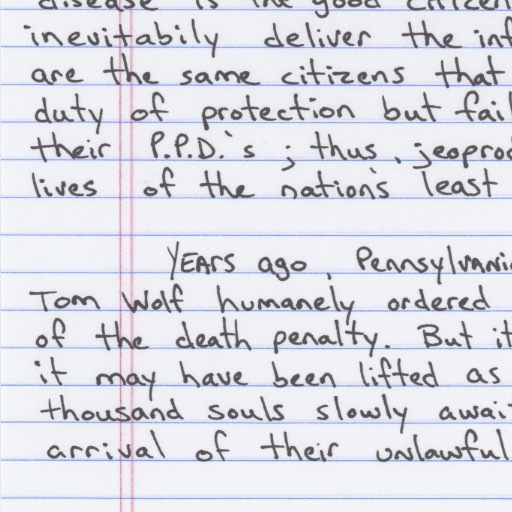 disease is the good citizen
inevitabily deliver the inf
are the same citizens that
duty of protection but fail
their P.P.D.'s ; thus, jeoprod
lives of the nation's least
YEARS ago, Pennsylvani
Tom Wolf humanely ordered
of the death penalty. But it
it may have been lifted as
thousand souls slowly await
arrival of their unlawful